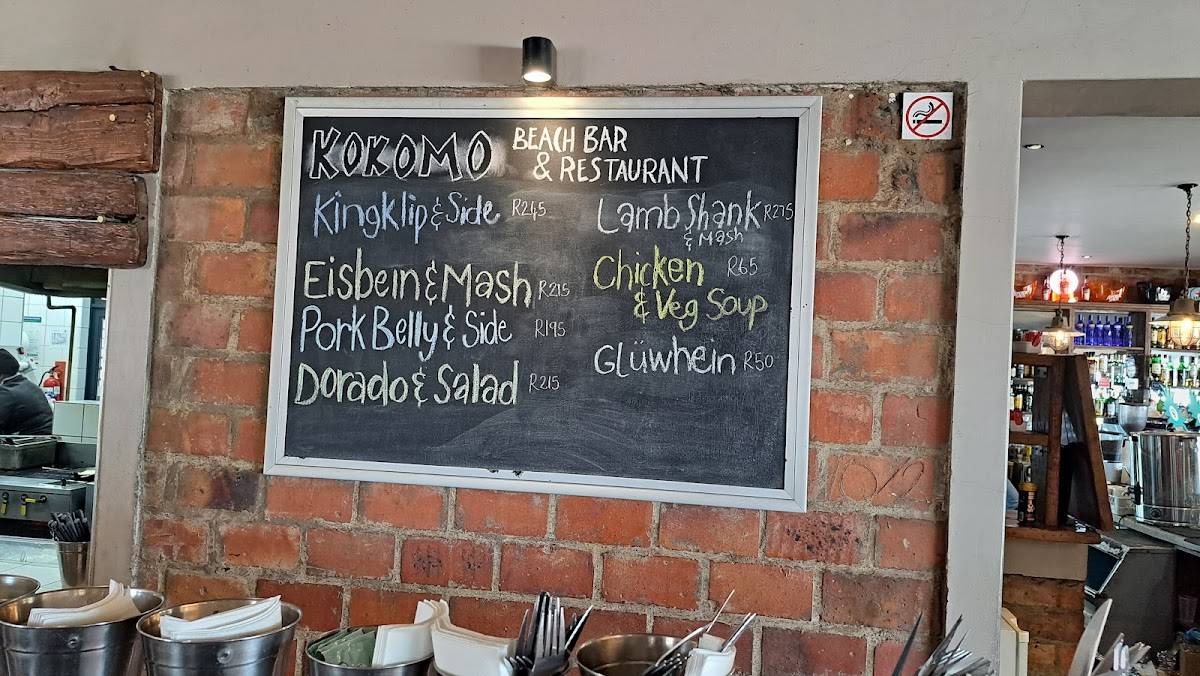 KOKOMO BEACH BAR
& RESTAURANT
Kingklip & Side R245
Eisbein & Mash R215
Pork Belly & Side R195
Dorado & Salad R215
Lamb Shank R275
& Mash
Chicken R65
& Veg Soup
Glüwhein R50